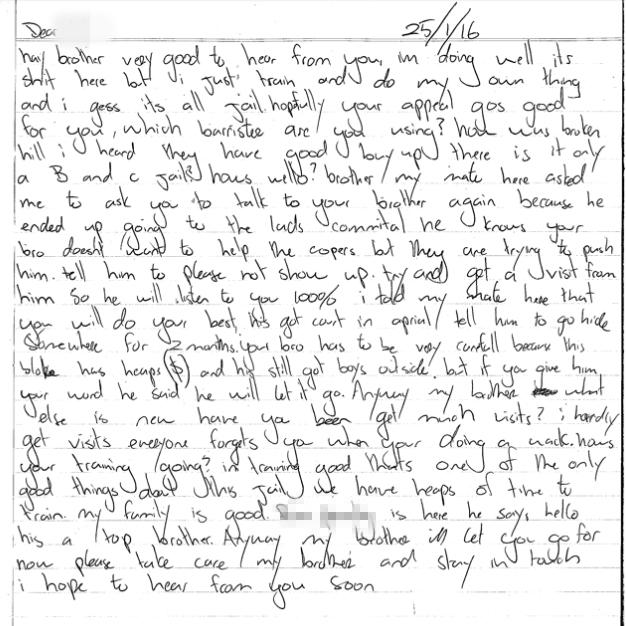 Dear
25/1/16
hay brother very good to hear from you, im doing well its
shit here but i just train and do my own thing
and i gess its all jail. hopfully your appeal gos good
for you, which barristee are you using? how was broken
hill i heard they have good buy up there is it only
a B and C jail? hows wello? brother my mate here asked
me to ask you to talk to your brother again because he
ended up going to the lads commital he knows your
bro doesnt want to help the copers but they are trying to push
him. tell him to please not show up. try and get a visit from
him so he will listen to you 100% i told my mate here that
you will do your best, his got court in aprial tell him to go hide
Somewhere for 2 months. your bro has to be very carfull because this
bloke has heaps ($) and his still got boys outside. but if you give him
your word he said he will let it go. Anyway my brother what
else is new have ya been get much visits? i hardly
get visits everyone forgets ya when your doing a wack. hows
your training going? im training good thats one of the only
good things about this jail we have heaps of time to
train. my family is good. is here he says hello
his a top brother. Anyway my brother ill let you go for
now please take care my brother and stay in touch
i hope to hear from you soon